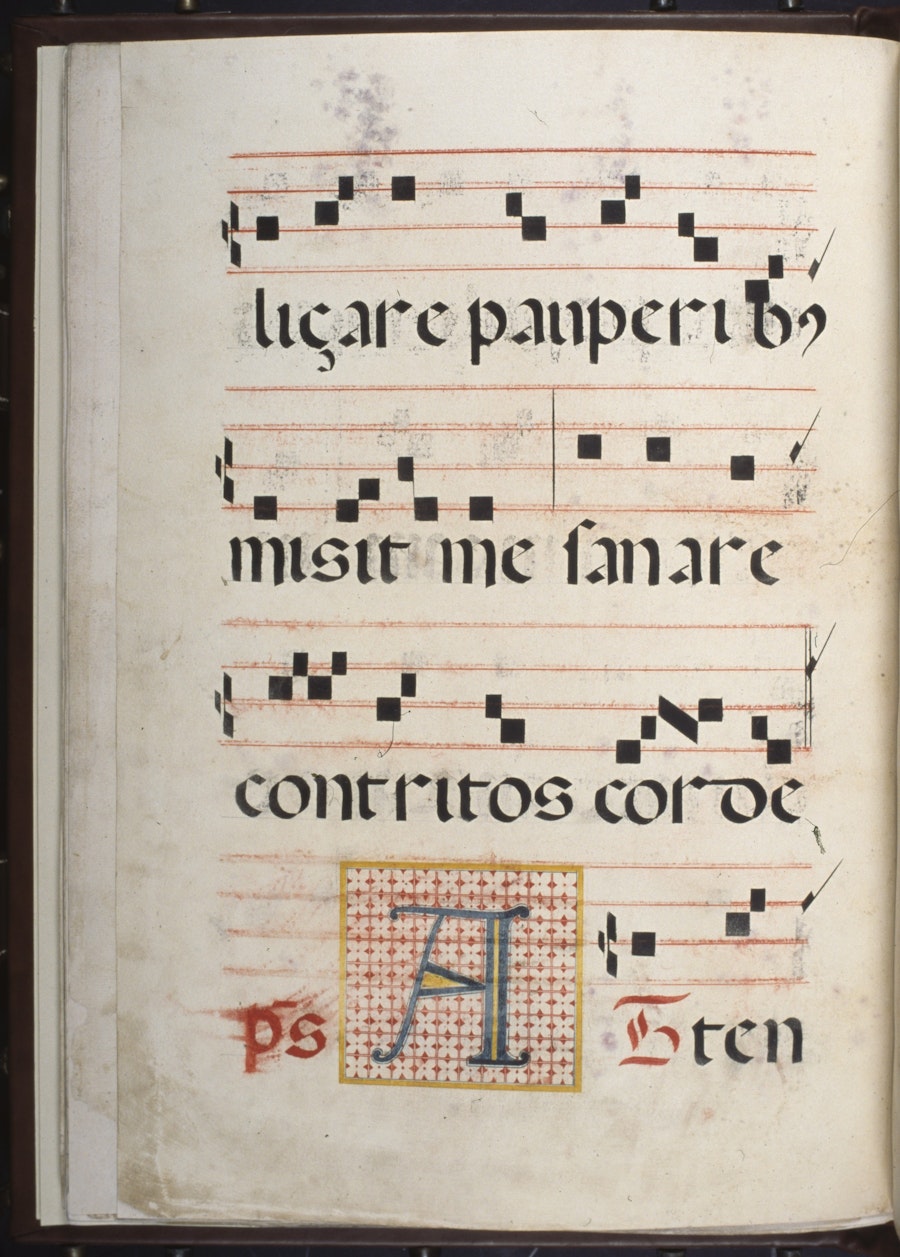 liçare pauperib9
misit me sanare
contritos corde
ps A Tten